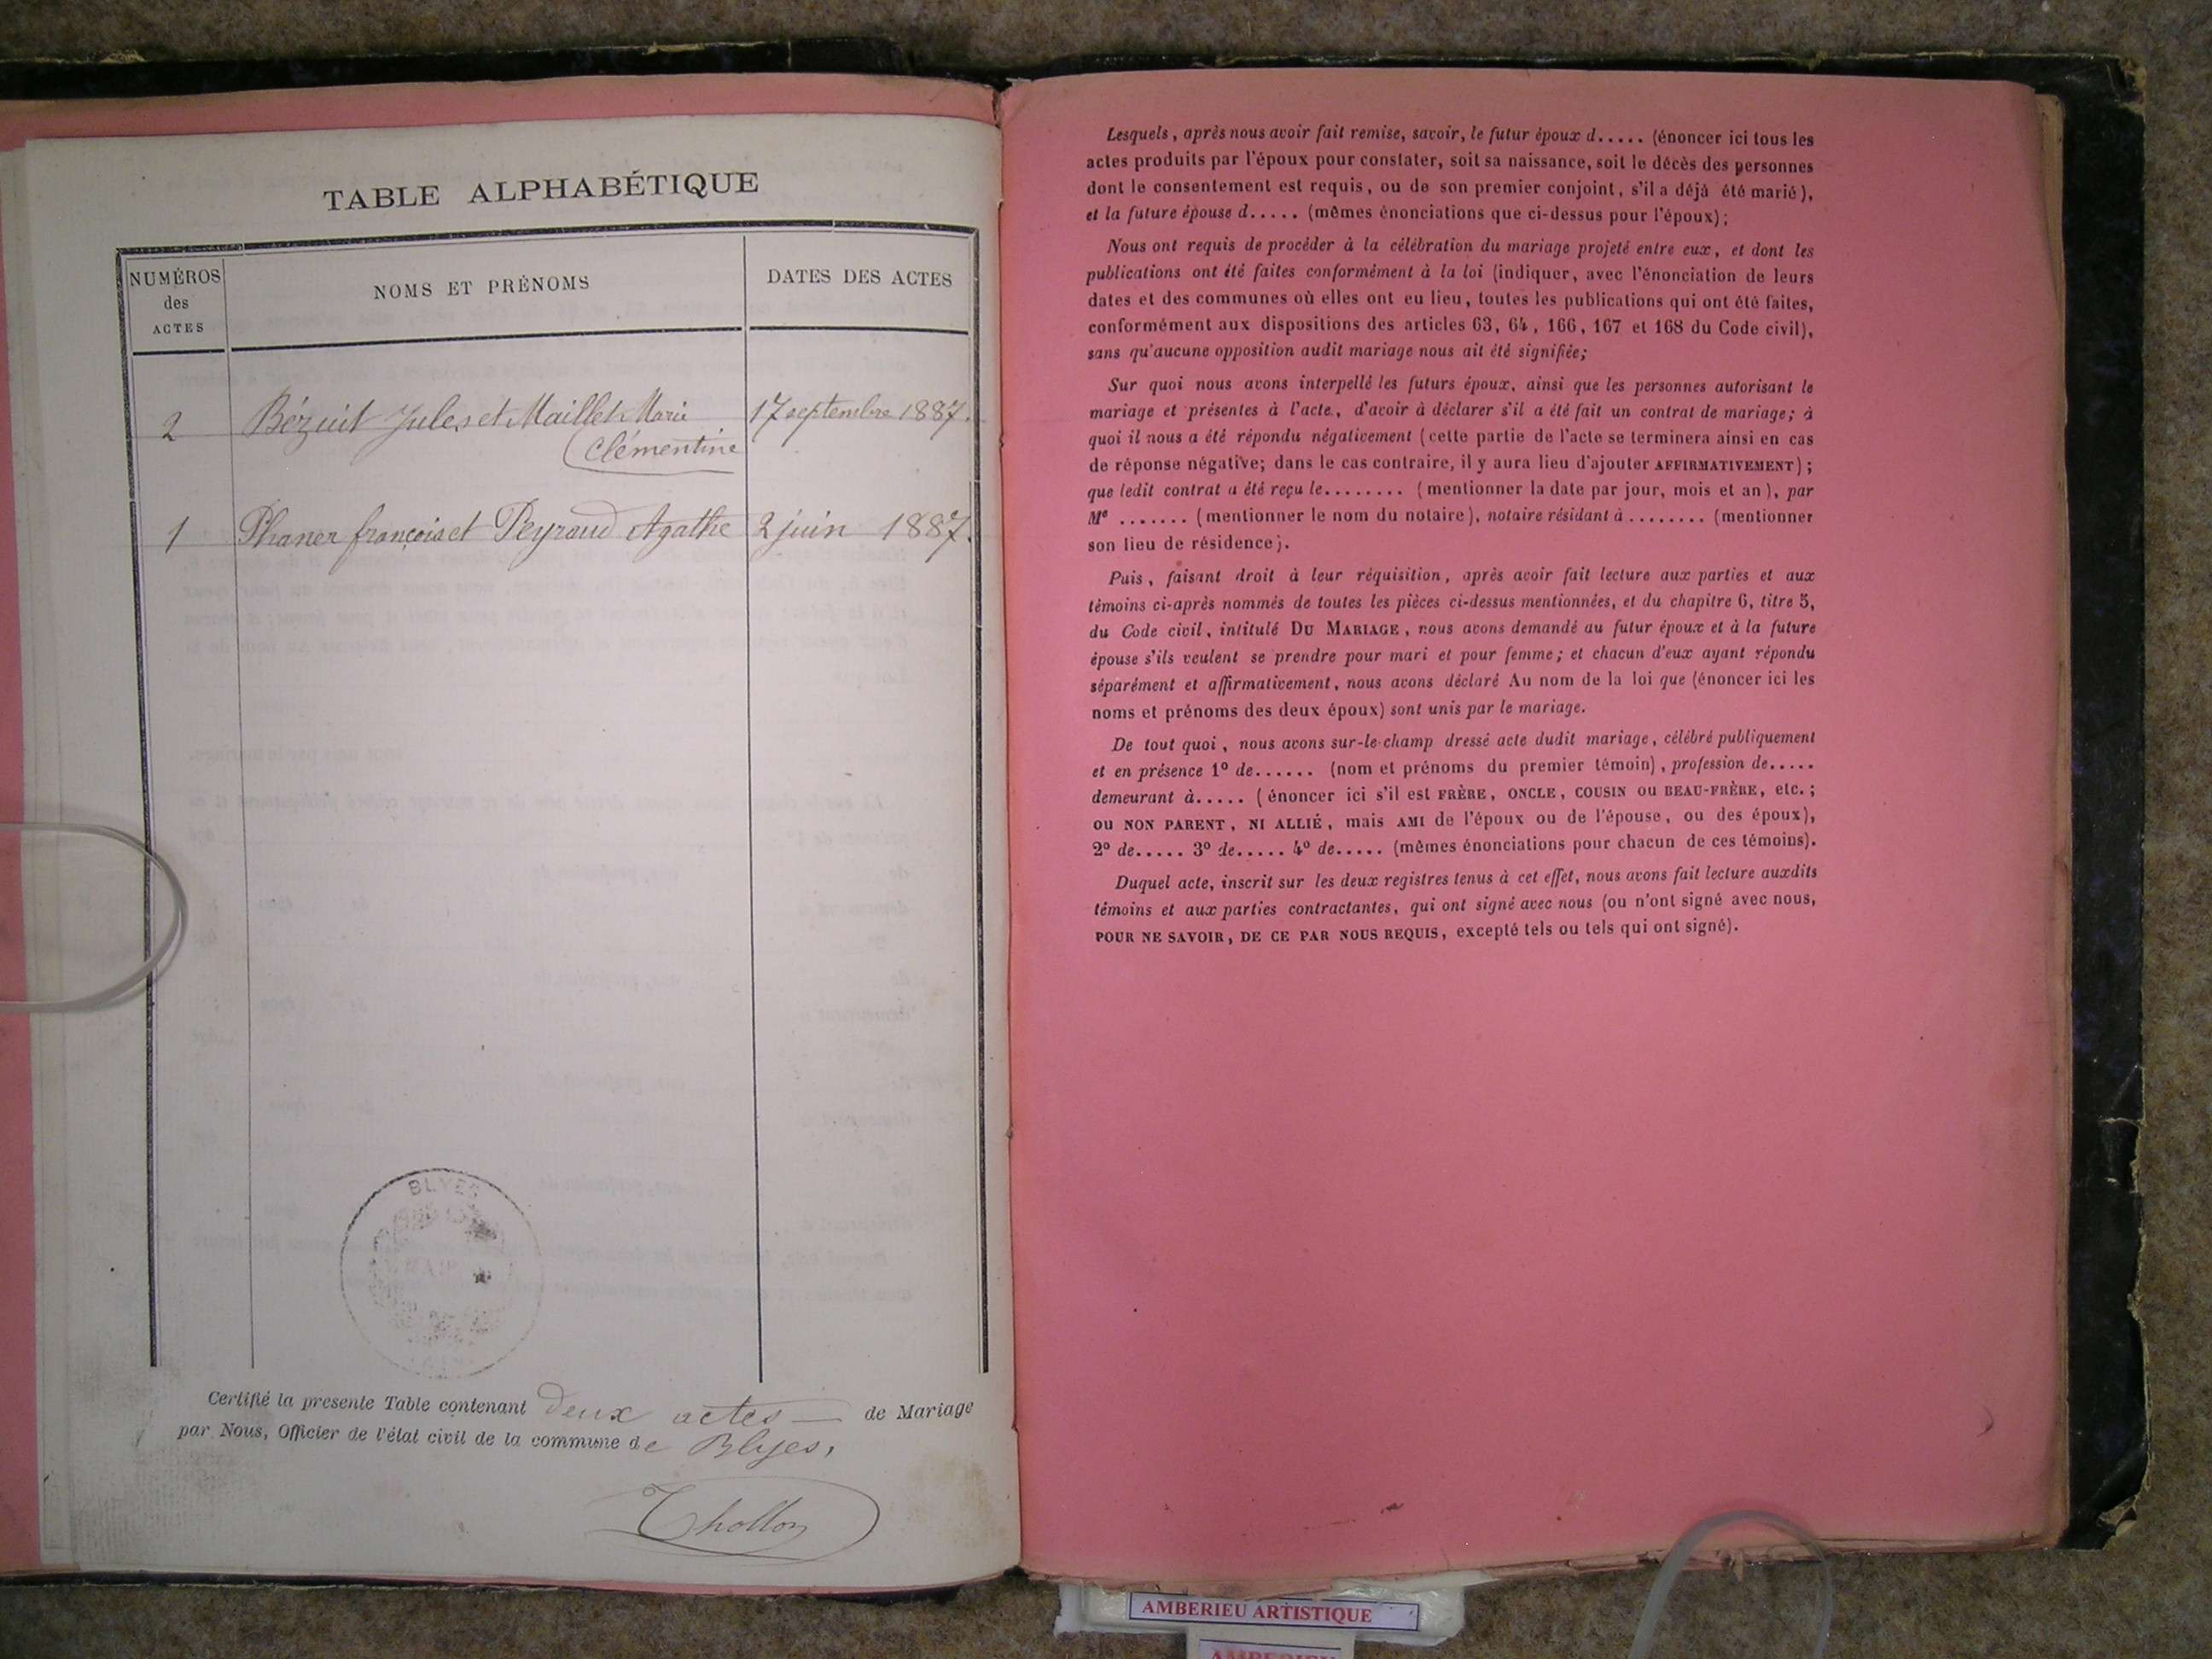 TABLE ALPHABÉTIQUE
NUMÉROS
des
ACTES
NOMS ET PRÉNOMS
DATES DES ACTES
2 Bézuit Jules et Maillet Marie 17 septembre 1887.
Clémentine
1 Phaner françois et Peyraud Agathe 2 juin 1887.
BLYES
Certifié la presente Table contenant deux actes — de Mariage
par Nous, Officier de l'état civil de la commune de Blyes,
Thollon
Lesquels, après nous avoir fait remise, savoir, le futur époux d..... (énoncer ici tous les
actes produits par l'époux pour constater, soit sa naissance, soit le décès des personnes
dont le consentement est requis, ou de son premier conjoint, s'il a déjà été marié),
et la future épouse d..... (mêmes énonciations que ci-dessus pour l'époux);
Nous ont requis de procéder à la célébration du mariage projeté entre eux, et dont les
publications ont été faites conformément à la loi (indiquer, avec l'énonciation de leurs
dates et des communes où elles ont eu lieu, toutes les publications qui ont été faites,
conformément aux dispositions des articles 63, 64, 166, 167 et 168 du Code civil),
sans qu'aucune opposition audit mariage nous ait été signifiée;
Sur quoi nous avons interpellé les futurs époux, ainsi que les personnes autorisant le
mariage et présentes à l'acte, d'avoir à déclarer s'il a été fait un contrat de mariage; à
quoi il nous a été répondu négativement (cette partie de l'acte se terminera ainsi en cas
de réponse négative; dans le cas contraire, il y aura lieu d'ajouter AFFIRMATIVEMENT);
que ledit contrat a été reçu le........ (mentionner la date par jour, mois et an), par
Me ....... (mentionner le nom du notaire), notaire résidant à ........ (mentionner
son lieu de résidence).
Puis, faisant droit à leur réquisition, après avoir fait lecture aux parties et aux
témoins ci-après nommés de toutes les pièces ci-dessus mentionnées, et du chapitre 6, titre 5,
du Code civil, intitulé DU MARIAGE, nous avons demandé au futur époux et à la future
épouse s'ils veulent se prendre pour mari et pour femme; et chacun d'eux ayant répondu
séparément et affirmativement, nous avons déclaré Au nom de la loi que (énoncer ici les
noms et prénoms des deux époux) sont unis par le mariage.
De tout quoi, nous avons sur-le-champ dressé acte dudit mariage, célébré publiquement
et en présence 1º de...... (nom et prénoms du premier témoin), profession de.....
demeurant à..... (énoncer ici s'il est FRÈRE, ONCLE, COUSIN ou BEAU-FRÈRE, etc.;
ou NON PARENT, NI ALLIÉ, mais AMI de l'époux ou de l'épouse, ou des époux),
2º de..... 3º de..... 4º de..... (mêmes énonciations pour chacun de ces témoins).
Duquel acte, inscrit sur les deux registres tenus à cet effet, nous avons fait lecture auxdits
témoins et aux parties contractantes, qui ont signé avec nous (ou n'ont signé avec nous,
POUR NE SAVOIR, DE CE PAR NOUS REQUIS, excepté tels ou tels qui ont signé).
AMBERIEU ARTISTIQUE
AMBERIEU